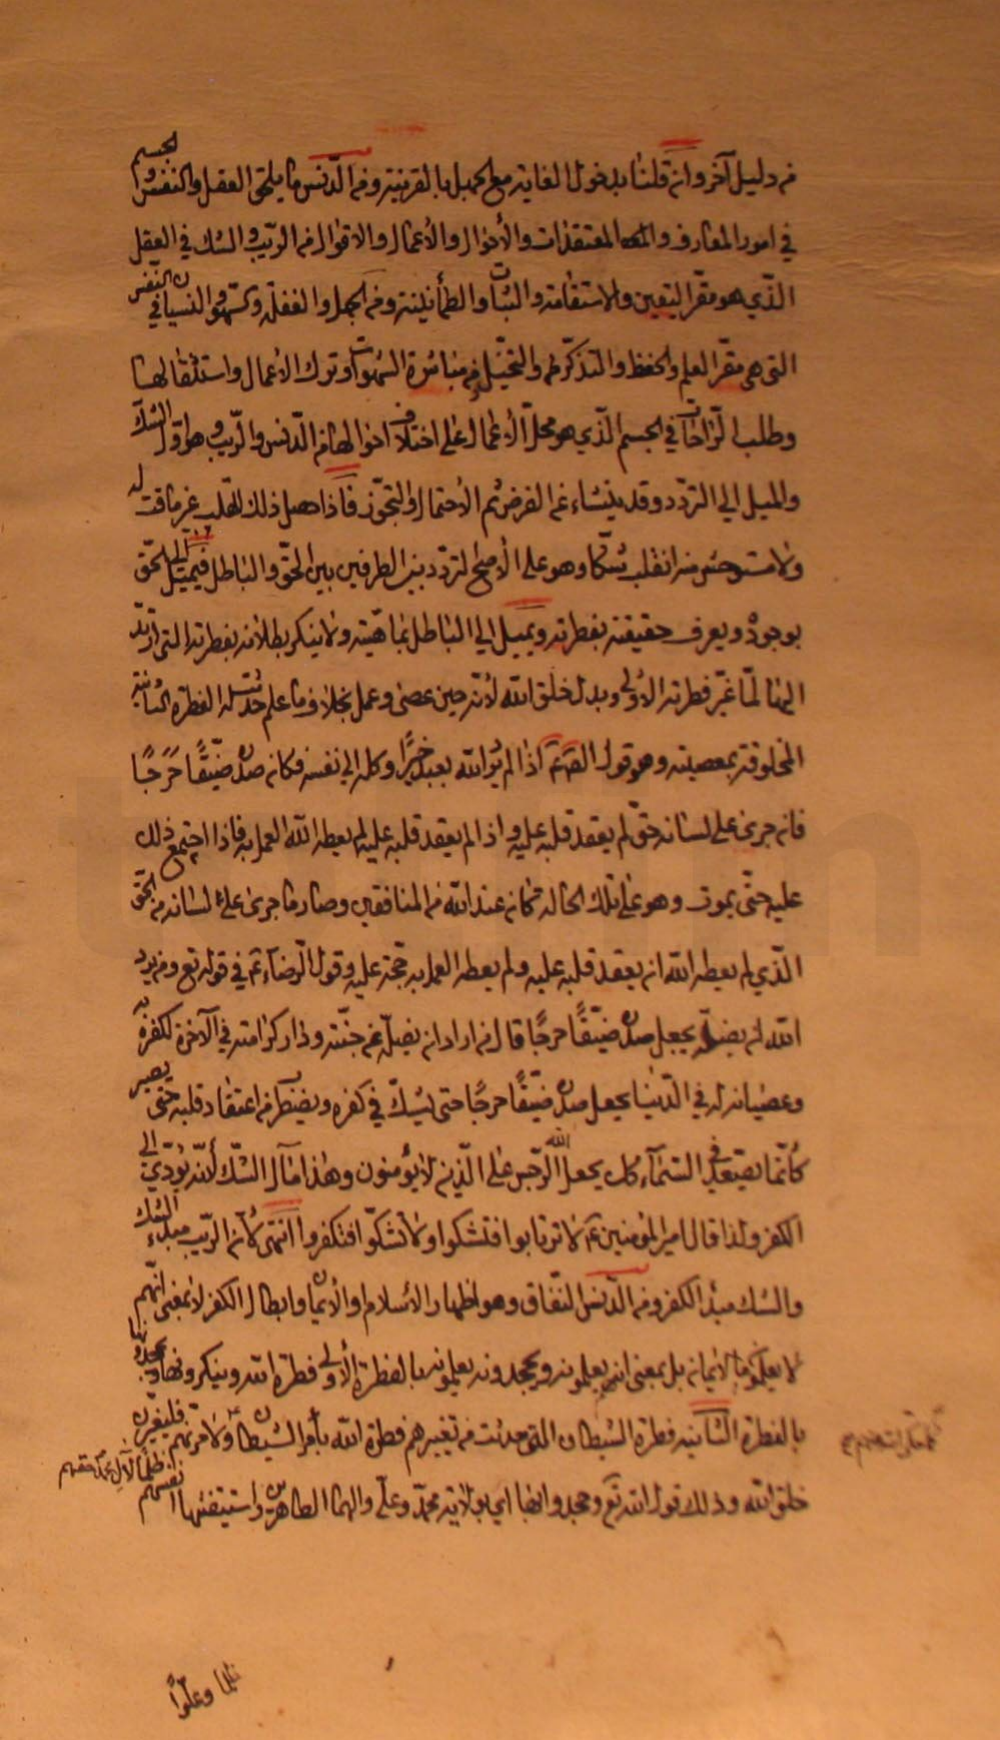 من دليل آخر وان قلنا بدخول الغاية مع الجهل بالقرينة ومن الدنس ما يلحق العقل والنفس والجسم
في امور المعارف والمعتقدات والأحوال والأعمال والاقوال من الريب والشك في العقل
الذي هو مقر اليقين والاستقامة والثبات والطمأنينة ومن الجهل والغفلة والسهو والنسيان في النفس
التي هي مقر العلم والحفظ والتذكر والتخيل من مباشرة الشهوات وترك الاعمال واستثقالها
وطلب الراحات في الجسم الذي هو محل الأعمال على اختلاف احوالها من الدنس والريب وهو اول الشك
والميل الي التردد وقد ينشاء عن الفرض ثم الأحتمال والتجوز فاذا حصل ذلك للقلب غير ماقت له
ولا مستوحش منه انقلب شكا وهو على الأصح لتردد بين الطرفين بين الحق والباطل فيميل الى الحق
بوجوده ويعرف حقيقته بفطرته ويميل الي الباطل بماهيته ولا ينكر بطلانه بفطرته التي ارتد
اليها لما غير فطرته الأولى وبدل خلق الله لأنه حين عصى وعمل بخلاف ما علم حدثت له الفطرة الثانية
المخلوقة بمعصيته وهو قول الصم اذا لم يرد الله بعبد خيرا وكله الي نفسه فكان صدره ضيقا حرجا
فان جرى على لسانه حق لم يعقد قلبه عليه واذا لم يعقد قلبه عليه لم يعطه الله العمل به فاذا اجتمع ذلك
عليه حتى يموت وهو على تلك الحالة كان عند الله من المنافقين وصار ما جرى على لسانه من الحق
الذي لم يعطه الله ان يعقد قلبه عليه ولم يعطه العمل به حجة عليه وقول الرضاء عم في قوله تع ومن يرد
الله ان يضله يجعل صدره ضيقا حرجا قال من اراد ان يضله عن جنته ودار كرامته في الآخرة لكفره به
وعصيانه له في الدنيا يجعل صدره ضيقا حرجا حتى يشك في كفره ويضطرب من اعتقاد قلبه حتى يصير
كأنما يصعد في السماء كذلك يجعل الله الرجس على الذين لا يؤمنون وهذا مآل الشك لأنه يؤدي الى
الكفر ولذا قال امير المؤمنين عم لا ترتابوا فتشكوا ولا تشكوا فتكفروا انتهى لأن الريب مبدء الشك
والشك مبدأ الكفر ومن الدنس النفاق وهو اظهار الأسلام والأيمان وابطان الكفر لا بمعنى انهم
لا يعلمون الايمان بل بمعنى انهم يعلمونه ويجحدونه يعلمونها بالفطرة الأولى فطرة الله وينكرونها ويجحدونها
بالفطرة الثانية فطرة الشيطان التي حدثت من تغييرهم فطرة الله بأمر الشيطان ولآمرنهم فليغيرن
خلق الله وذلك قول الله تع وجحدوا بها اي بولاية محمد وعلي وآلهما الطاهرين واستيقنتها انفسهم ظلما لآل محمد حقهم
ظلما وعلوا